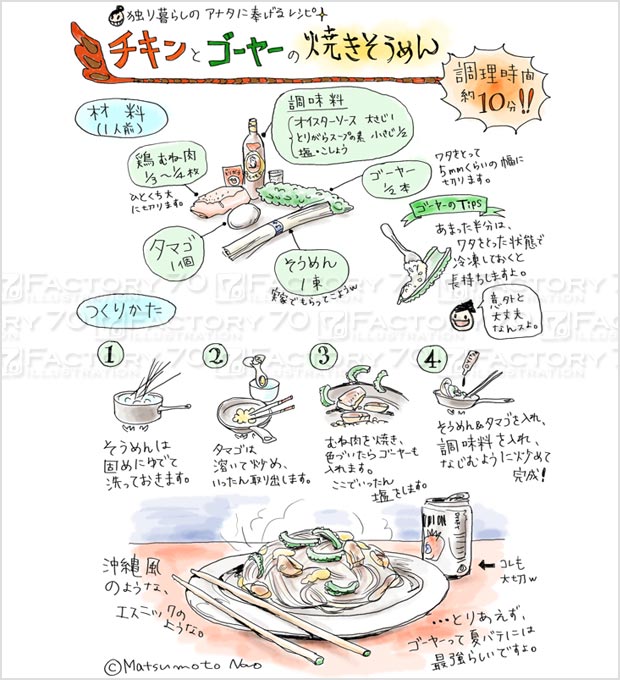 独り暮らしの アナタに奉げるレシピ
チキンとゴーヤーの焼きそうめん
調理時間
約10分!!
材料
(1人前)
調味料
オイスターソース 大さじ1
とりがらスープの素 小さじ1/2
塩・こしょう
鶏むね肉
1/3〜1/4枚
ひとくち大
に切ります。
ゴーヤー
1/2本
ワタをとって
5mmくらいの幅に
切ります。
タマゴ
1個
そうめん
1束
実家でもらってこようw
ゴーヤーのTips
あまった半分は、
ワタをとった状態で
冷凍しておくと
長持ちしますよ。
意外と
大丈夫
なんスよ。
つくりかた
1
そうめんは
固めにゆでて
洗っておきます。
2
タマゴは
溶いて炒め、
いったん取り出します。
3
むね肉を焼き、
色づいたらゴーヤーも
入れます。
ここでいったん
塩をします。
4
そうめん&タマゴを入れ、
調味料を入れ、
なじむように炒めて
完成!
沖縄風
のような、
エスニックの
ような。
コレも
大切w
…とりあえず、
ゴーヤーって夏バテには
最強らしいですよ。
©Matsumoto Nao
FACTORY 70
ILLUSTRATION